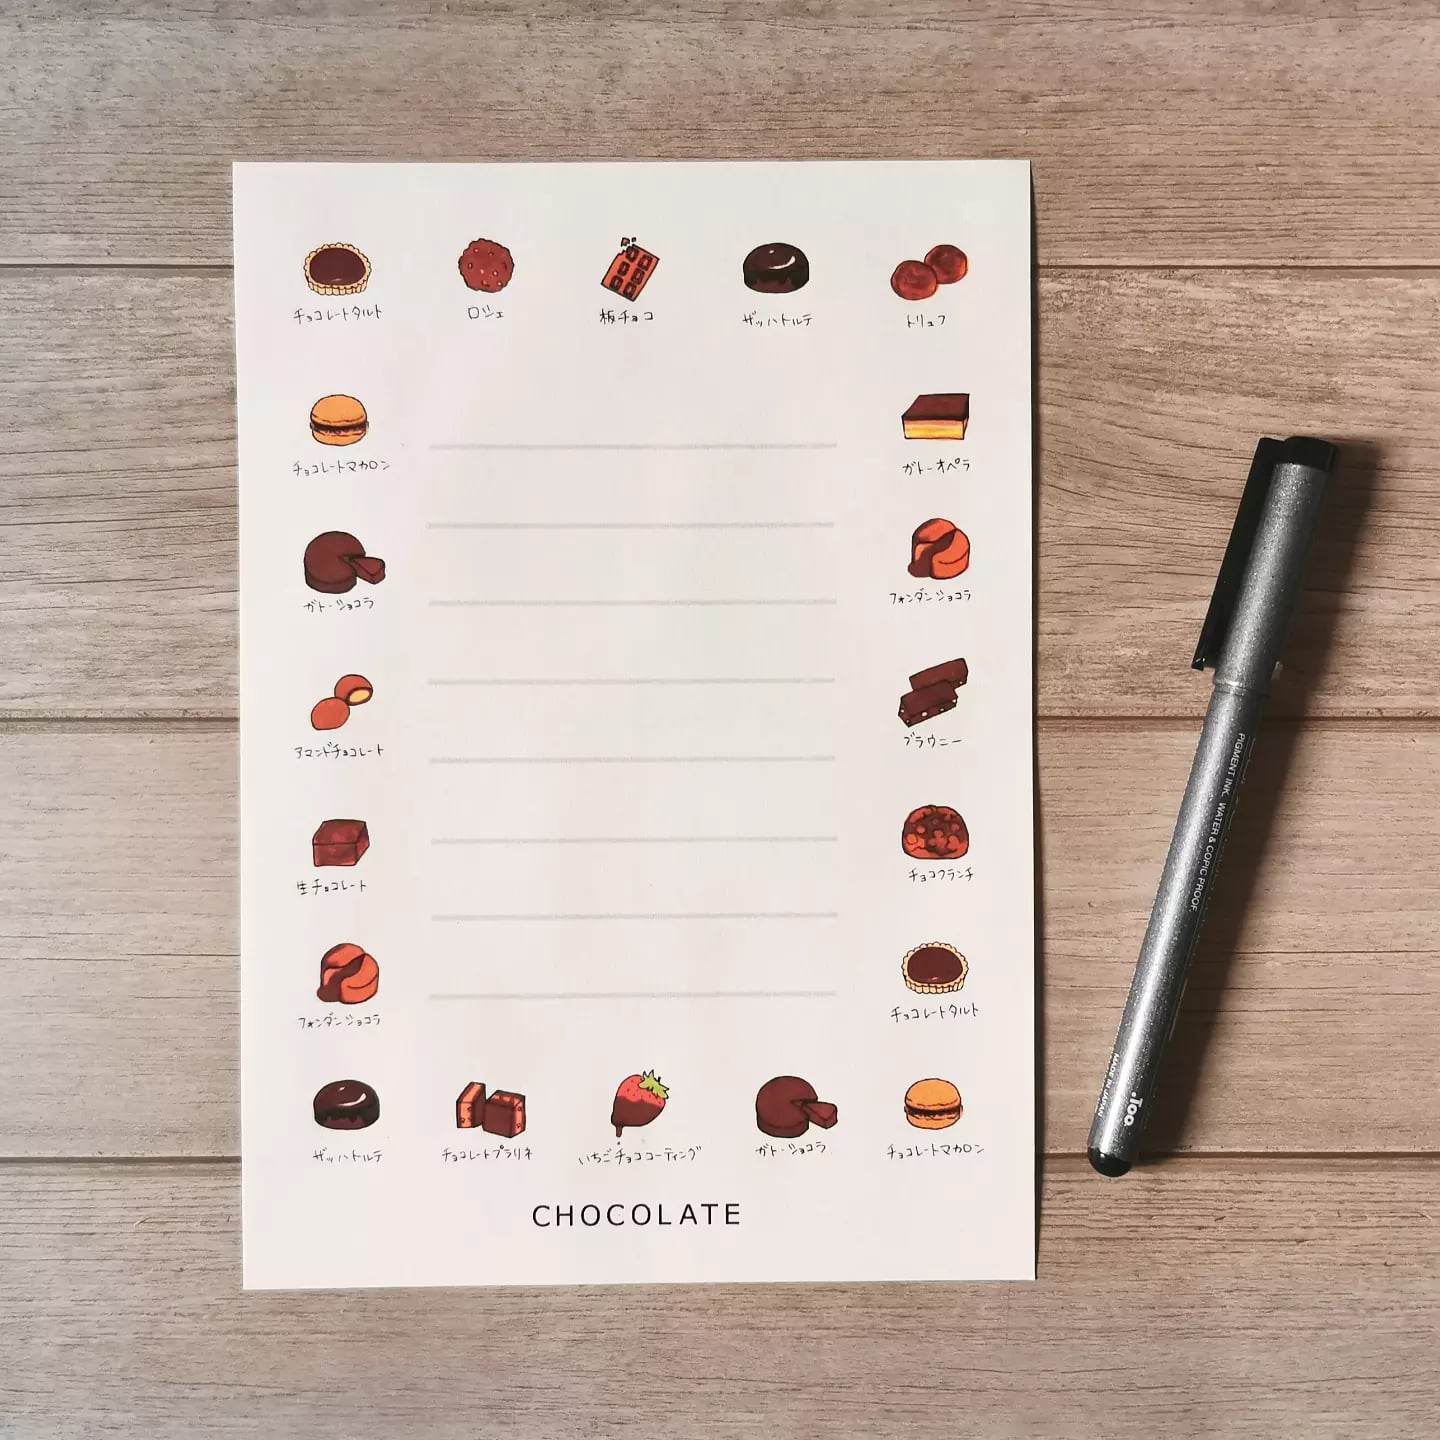 チョコレートタルト
ロシェ
板チョコ
ザッハトルテ
トリュフ
チョコレートマカロン
ガトーオペラ
ガトーショコラ
フォンダンショコラ
アマンドチョコレート
ブラウニー
生チョコレート
チョコクランチ
フォンダンショコラ
チョコレートタルト
ザッハトルテ
チョコレートプラリネ
いちごチョココーティング
ガトーショコラ
チョコレートマカロン
CHOCOLATE
PIGMENT INK. WATER & COPIC PROOF.
MADE IN JAPAN
.Too